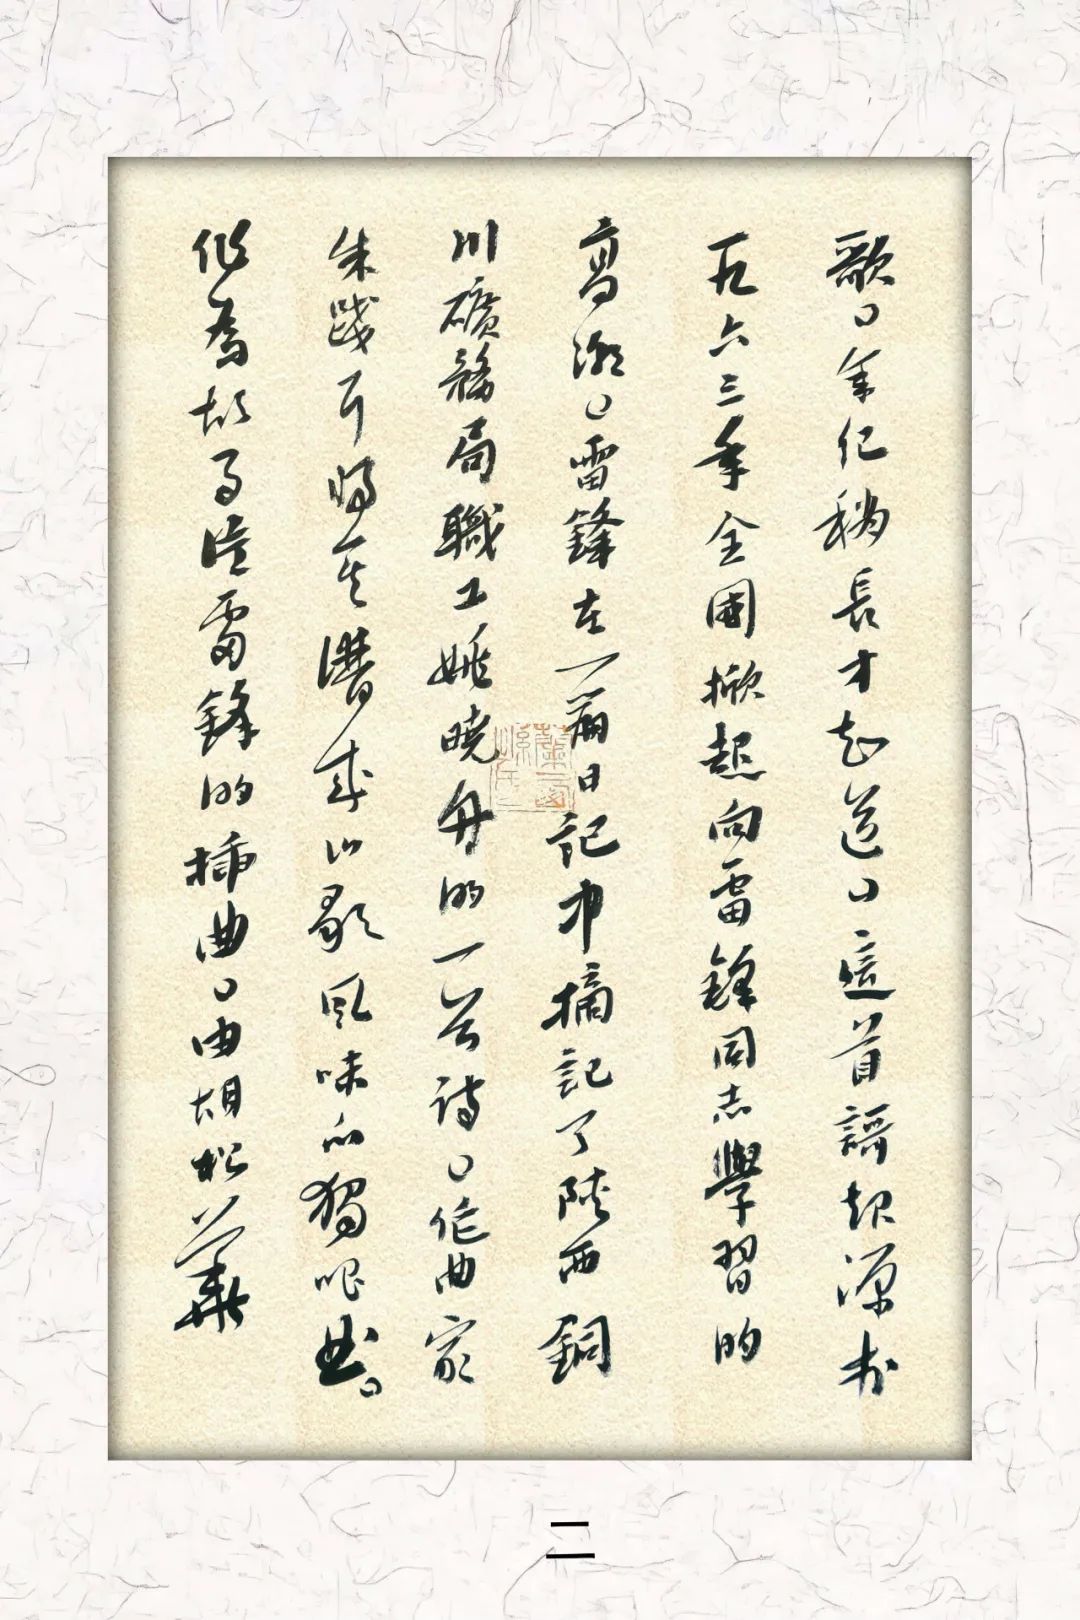 歌。年纪稍長才知道。這首謌起源於
一九六三年全國掀起向雷鋒同志學習的
高潮。雷鋒在一篇日記中摘記了陝西銅
川礦務局職工姚曉舟的一首詩。作曲家
朱踐耳將其譜成山歌風味的獨唱曲。
作為故事雷鋒的插曲。由胡松華
二